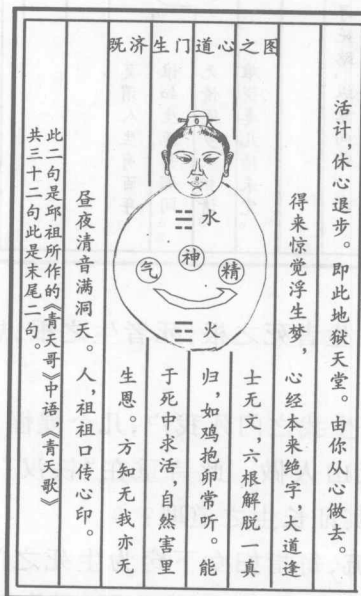 既济生门道心之图
活计，休心退步。即此地狱天堂。由你从心做去。
得来惊觉浮生梦，
心经本来绝字，大道逢
士无文，六根解脱一真
归，如鸡抱卵常听。能
于死中求活，自然害里
生恩。方知无我亦无
昼夜清音满洞天。
人，祖祖口传心印。
此二句是邱祖所作的《青天哥》中语，《青天歌》
共三十二句此是末尾二句。
水
气
神
精
火